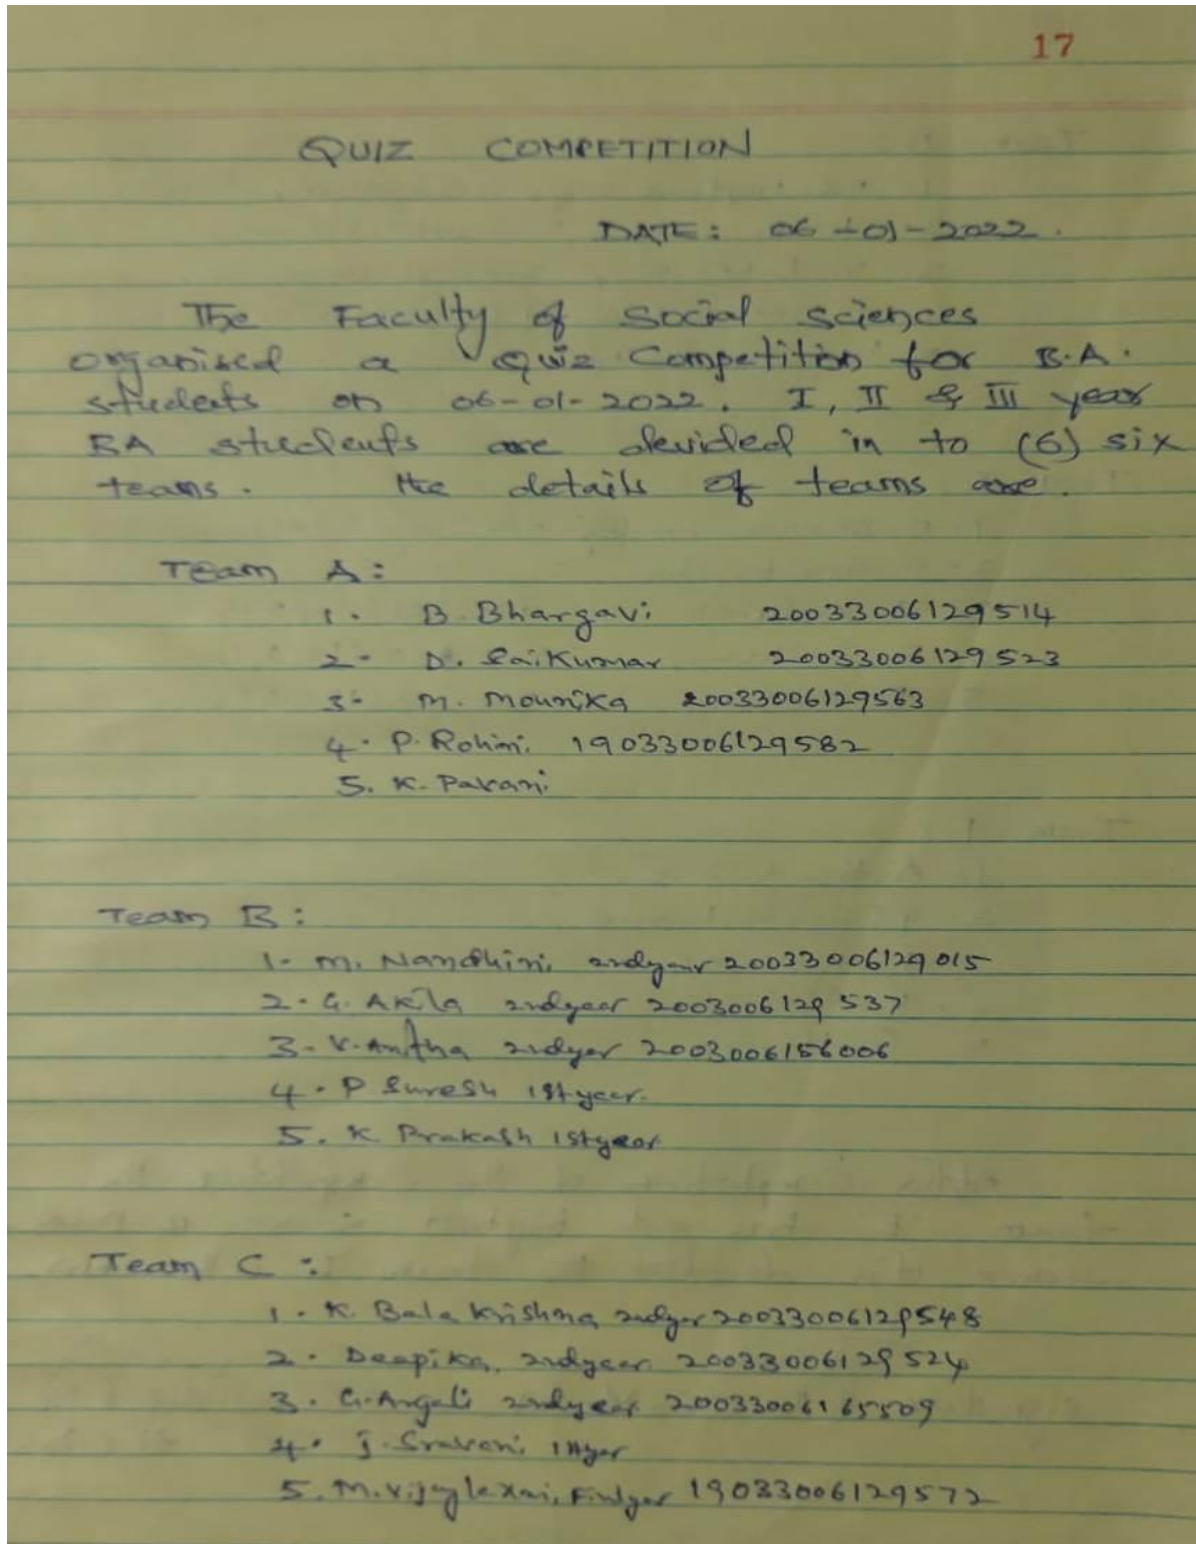 17
QUIZ COMPETITION
DATE: 06-01-2022.
The Faculty of Social Sciences
organised a Quiz Competition for B.A.
students on 06-01-2022. I, II & III year
BA students are devided in to (6) six
teams. the details of teams are.
Team A:
1. B. Bhargavi 20033006129514
2. D. SaiKumar 20033006129523
3. M. Mounika 20033006129563
4. P. Rohini 19033006129582
5. K. Pavani
Team B:
1. M. Nandhini, 2ndyear 20033006129015
2. G. Akila 2ndyear 2003006129537
3. V. Anitha 2ndyer 2003006156006
4. P Suresh 1styear.
5. K. Prakash 1styear
Team C:
1. K. Bala Krishna 2ndyer 20033006129548
2. Deepika, 2ndyear 20033006129524
3. G. Angali 2ndyear 20033006165509
4. J. Sravani 1styer
5. M. Vijaylaxmi, 19033006129572